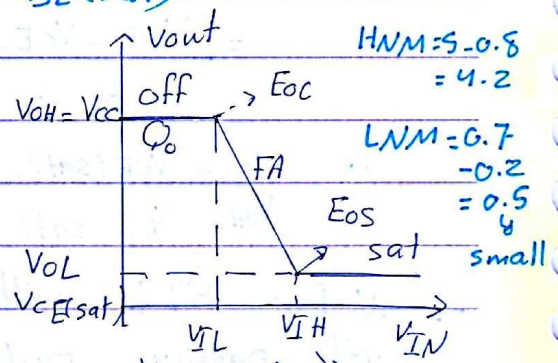 Vout
HNM=5-0.8
= 4.2
VOH=VCC off EOC
Qo
LNM=0.7
-0.2
= 0.5
small
FA
EOS
sat
VOL
VCE(sat)
VIL VIH VIN